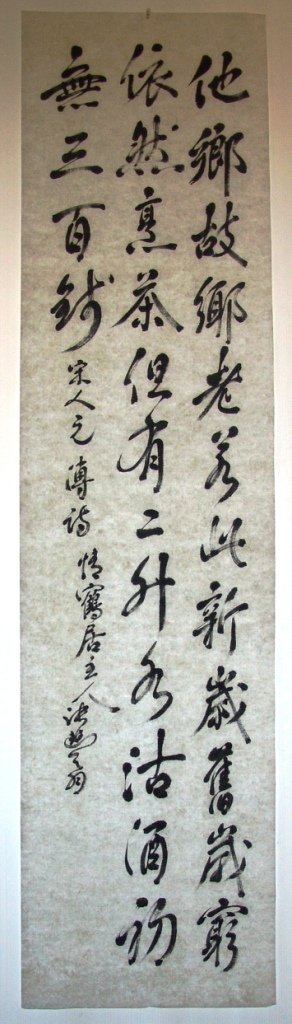 他鄉故鄉老若此新歲舊歲窮
依然烹茶但有二升水沽酒初
無三百錢宋人元溥詩 情寫居主人